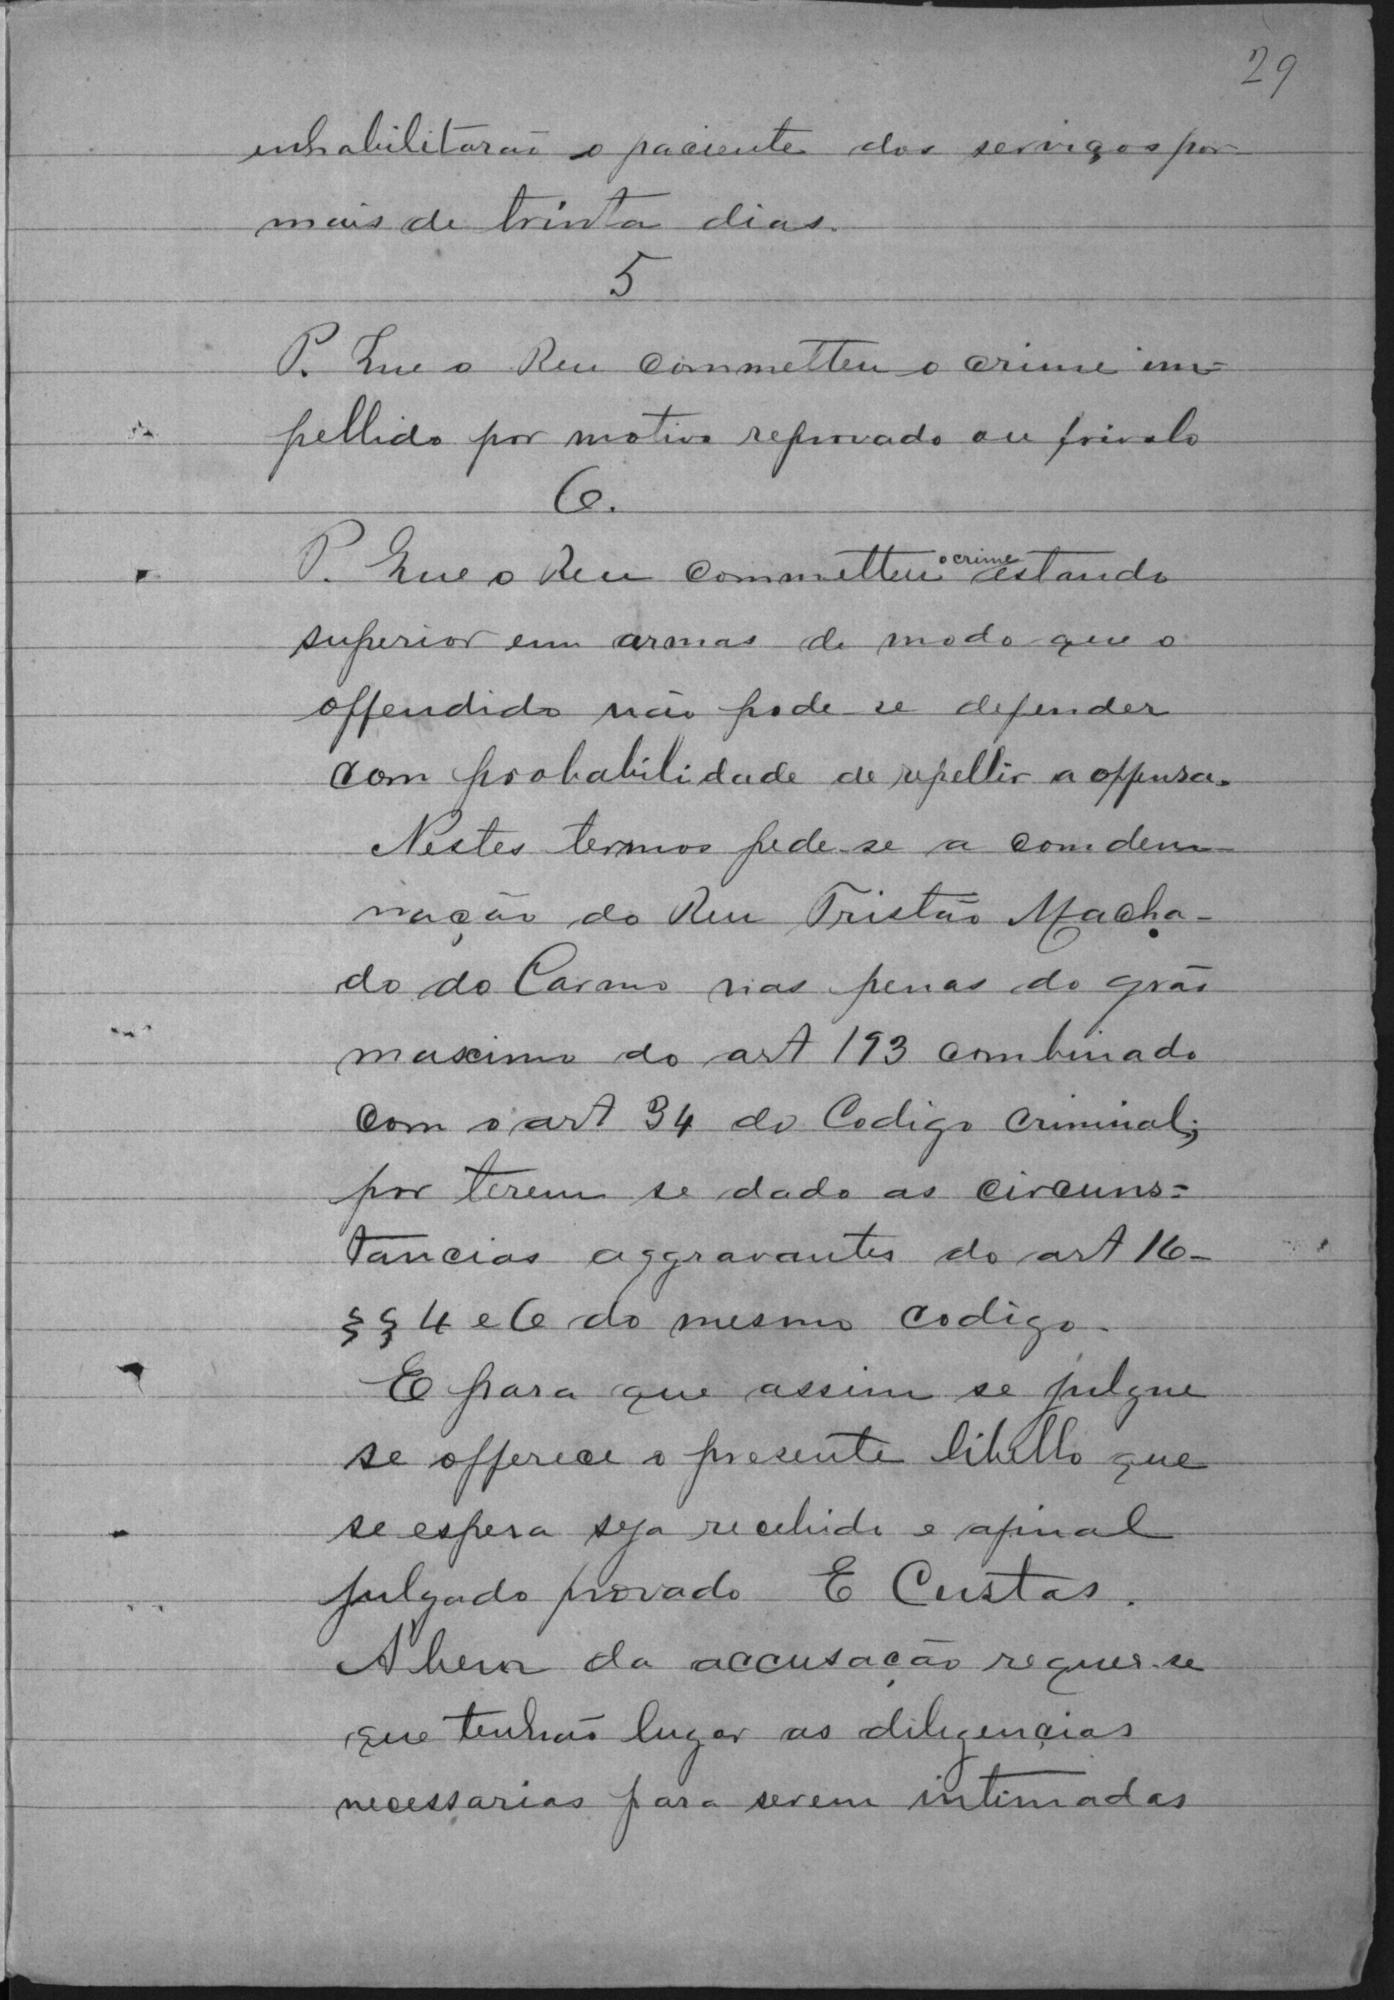 29
inhabilitarão o paciente dos serviços por
mais de trinta dias.
5
P. Que o Reu commetteu o crime im=
pellido por motivo reprovado ou frivolo
6.
P. Que o Reu commetteu o crime estando
superior em armas de modo que o
offendido não pode se defender
com probabilidade de repellir a offensa.
Nestes termos pede-se a condem-
nação do Reu Tristão Macha-
do do Carmo nas penas do grão
maximo do art 193 combinado
com o art 34 do Codigo Criminal;
por terem se dado as circuns=
tancias aggravantes do art 16-
§§ 4 e 6 do mesmo codigo.
E para que assim se julgue
se offerece o presente libello que
se espera seja recebido e afinal
julgado provado E Custas.
A bem da accusação requer-se
que tenhão lugar as diligencias
necessarias para serem intimadas